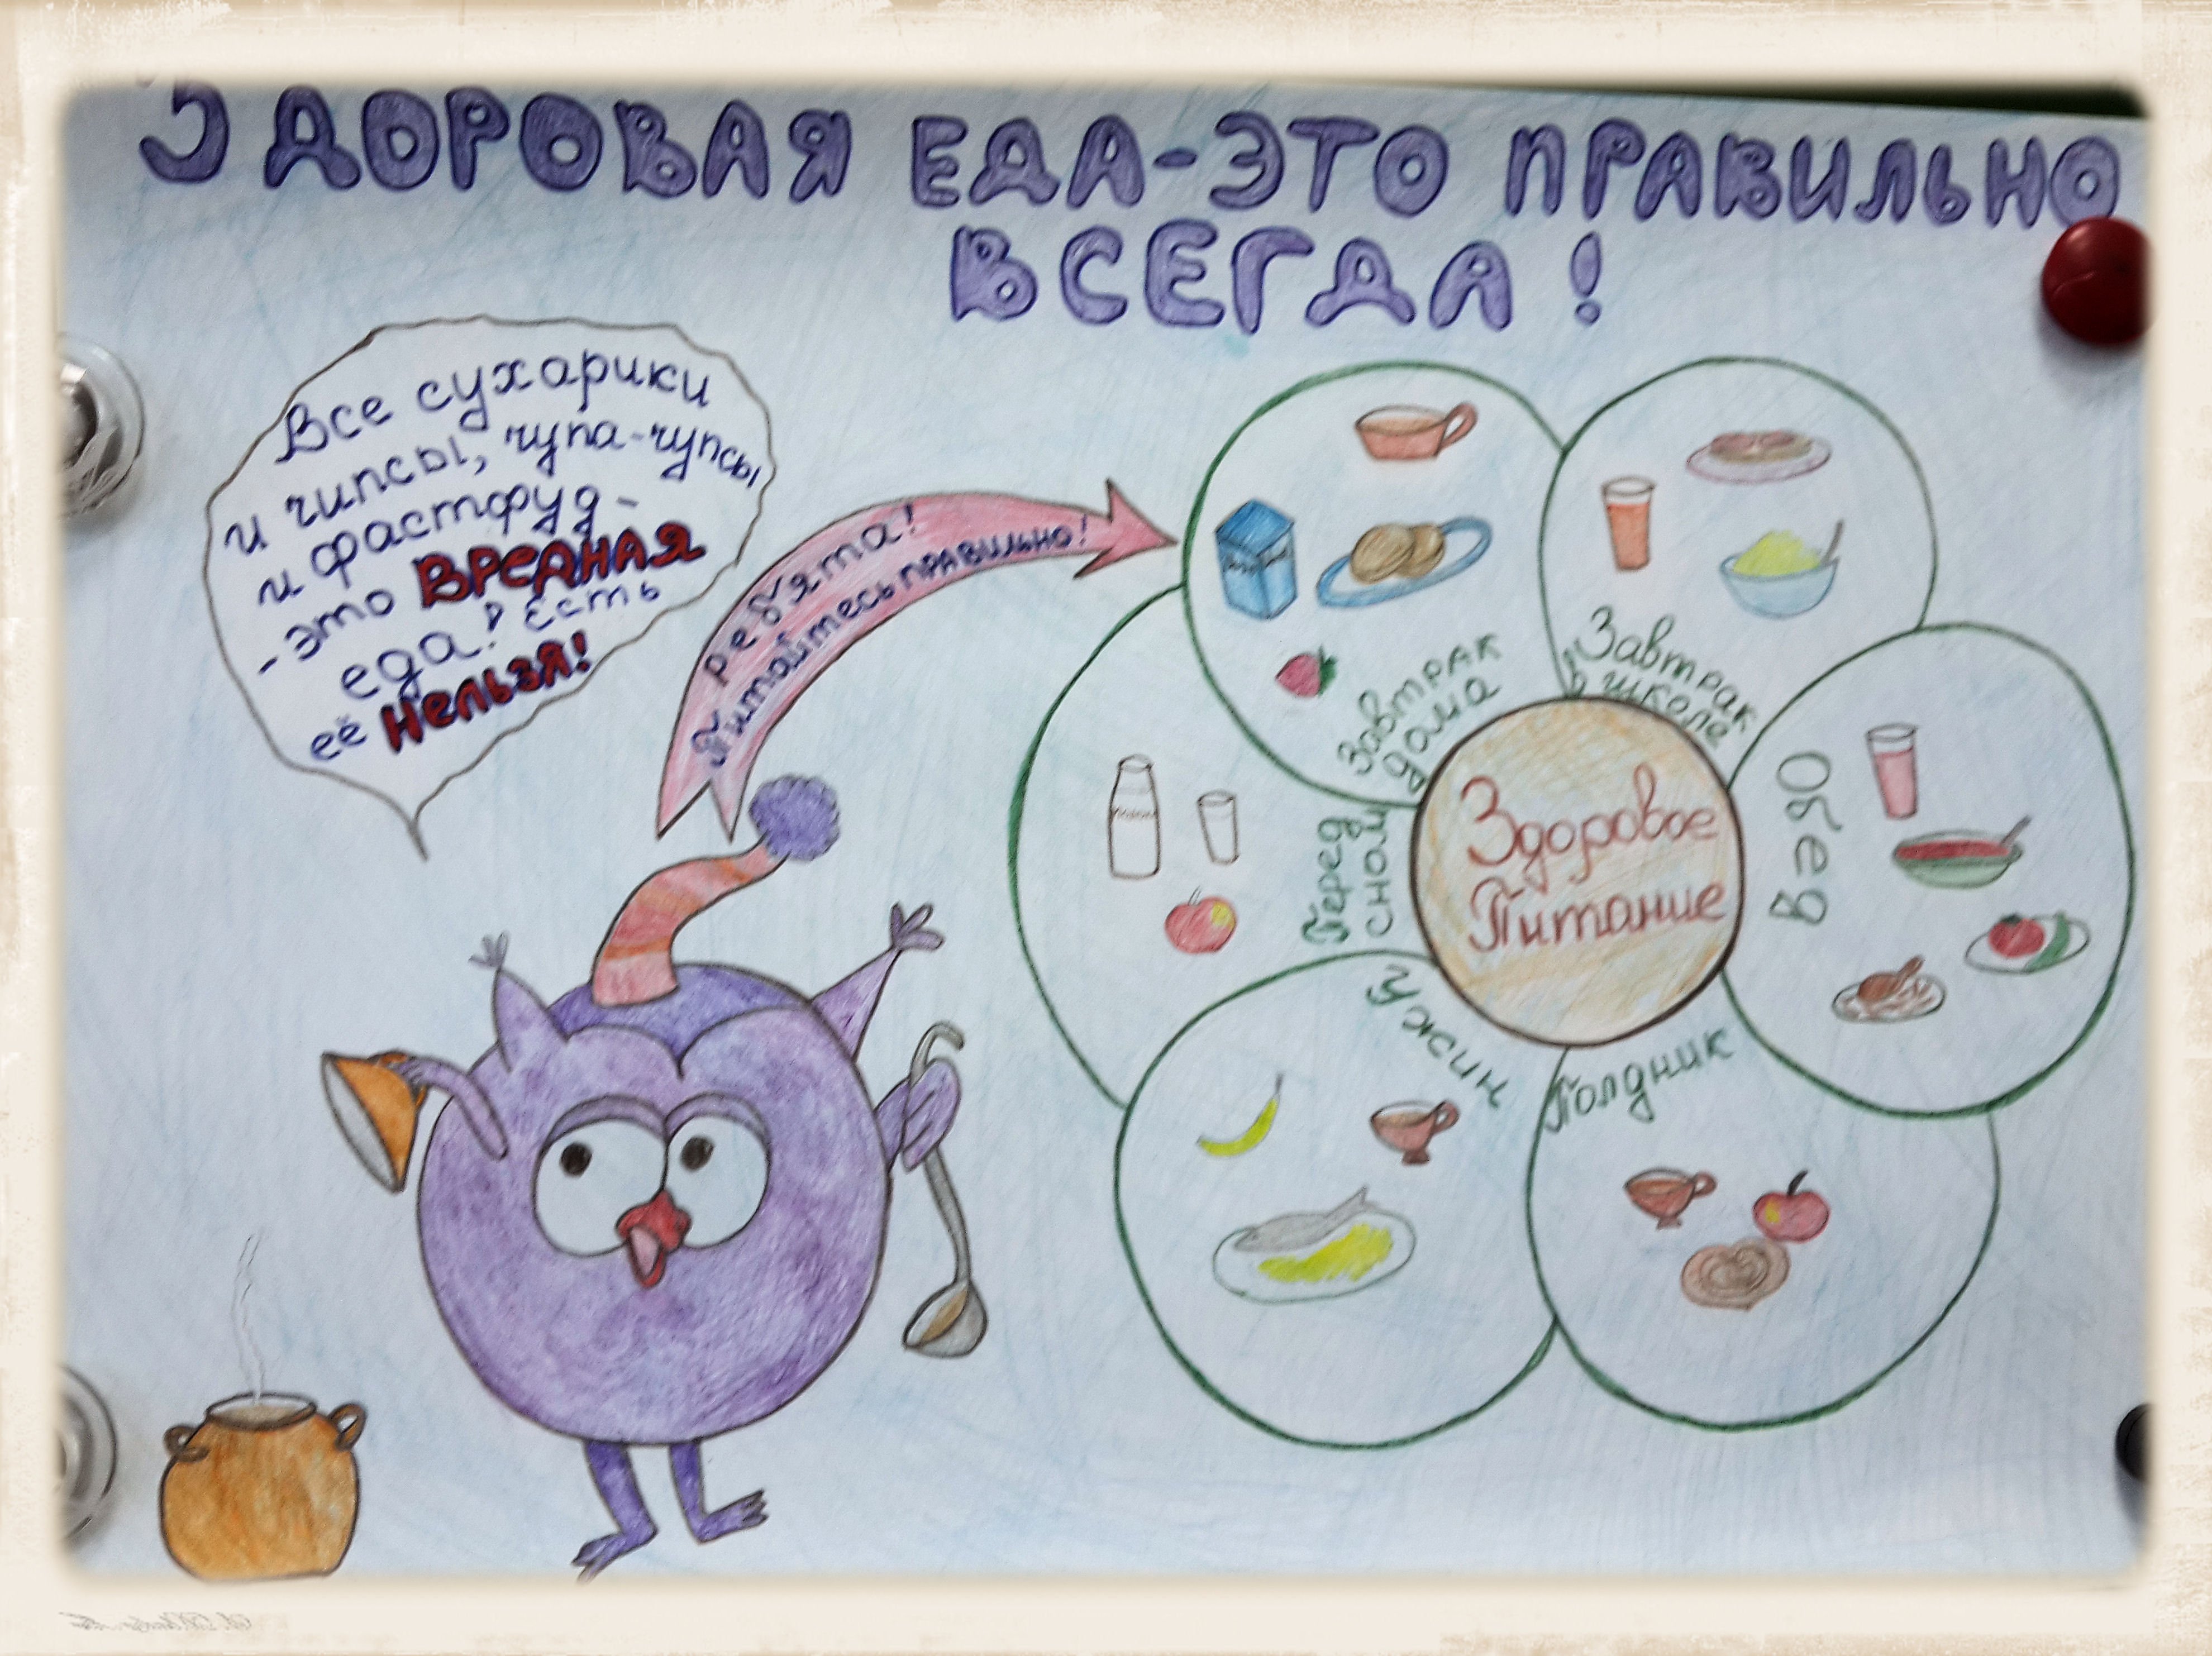 ЗДОРОВАЯ ЕДА-ЭТО ПРАВИЛЬНО
ВСЕГДА!
Все сухарики
и чипсы, чупа-чупсы
и фастфуд-
-это ВРЕДНАЯ
еда! Есть
её Нельзя!
Ребята!
Питайтесь правильно!
Завтрак
дома
Завтрак
в школе
Обед
Полдник
Ужин
Перед
сном
Здоровое
Питание